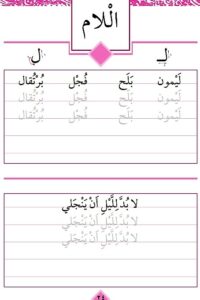 الْلام
لـ ل
لَيْمون بَلَح فُجْل بُرْتُقال
لَيْمون بَلَح فُجْل بُرْتُقال
لَيْمون بَلَح فُجْل بُرْتُقال
لا بُدَّ لِلَّيْلِ اَنْ يَنْجَلي
لا بُدَّ لِلَّيْلِ اَنْ يَنْجَلي
لا بُدَّ لِلَّيْلِ اَنْ يَنْجَلي
٢٤